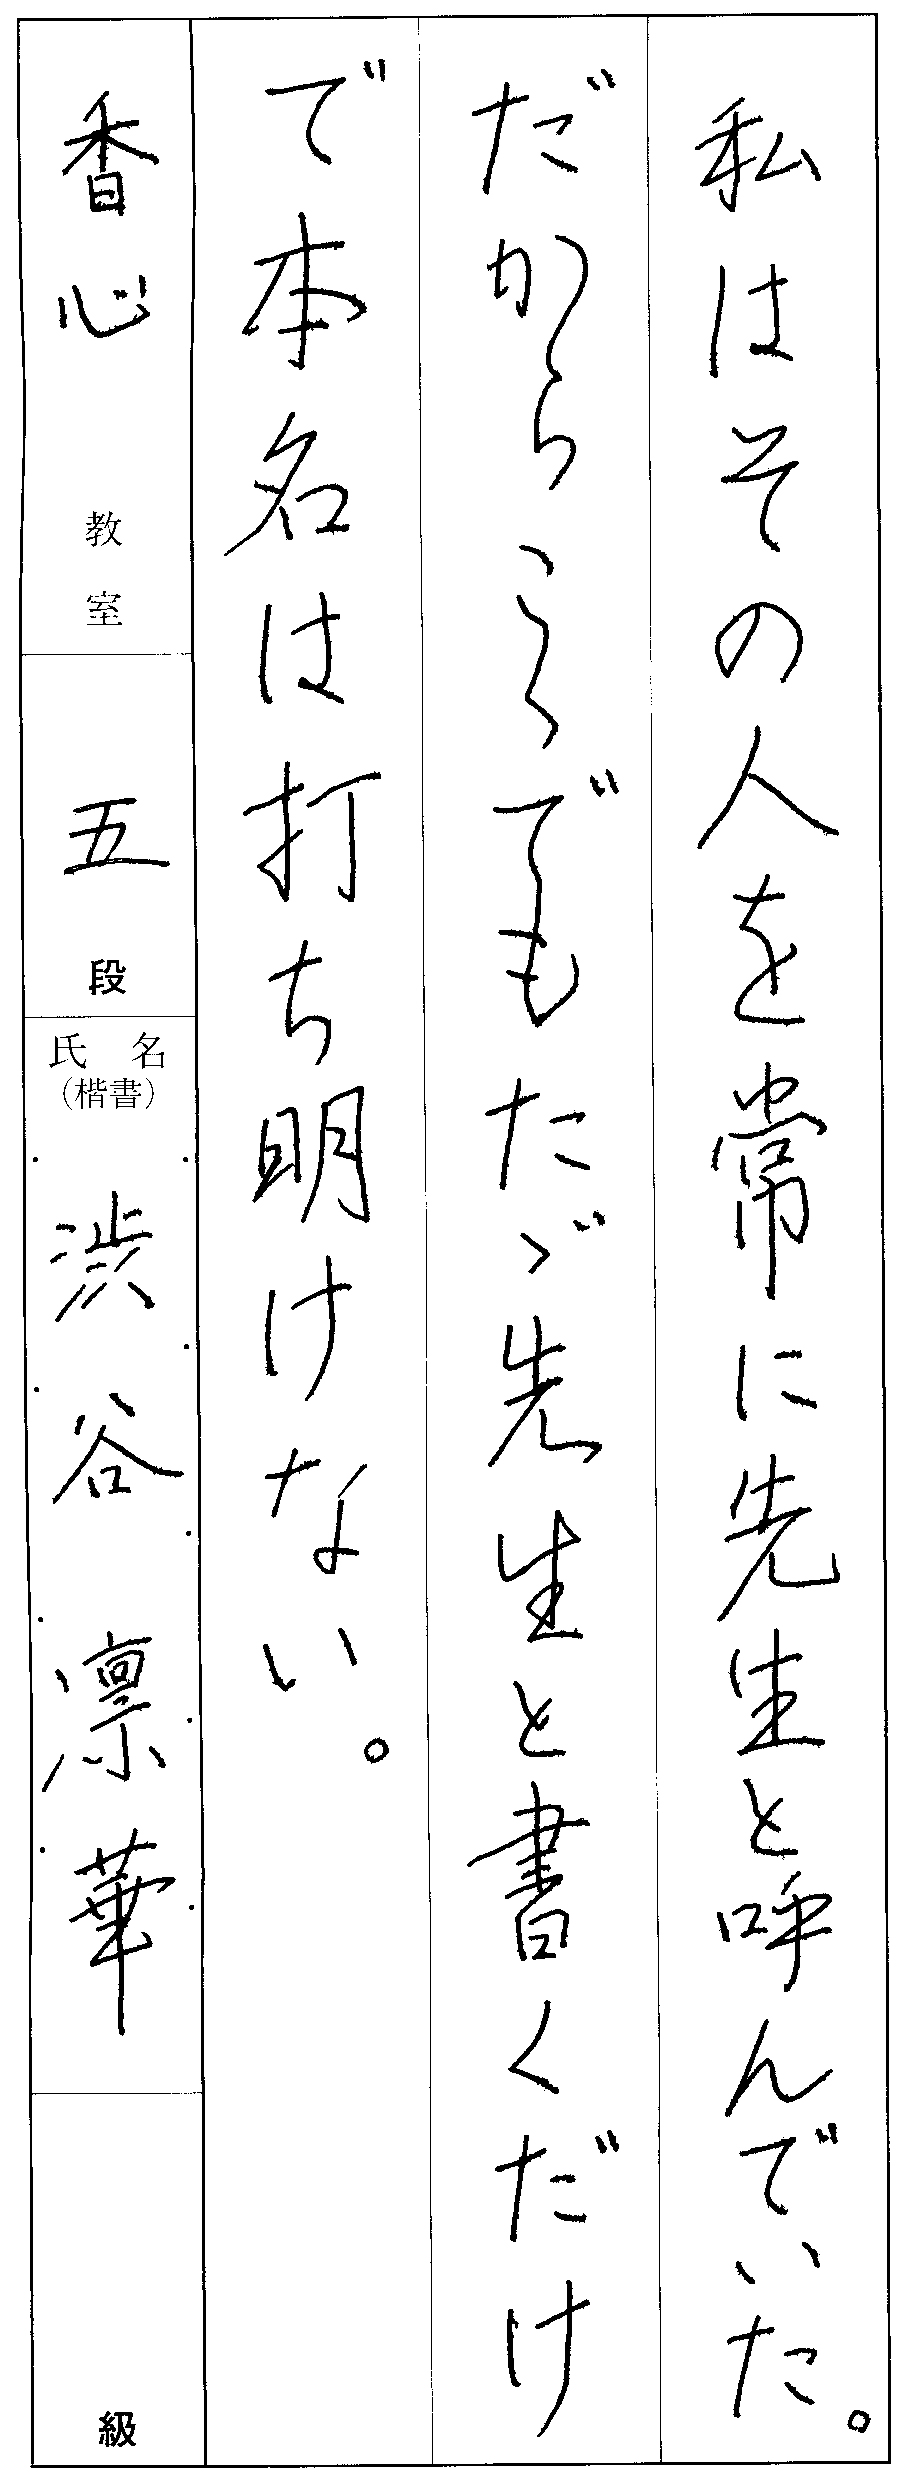 私はその人を常に先生と呼んでいた。
だからこゝでもたゞ先生と書くだけ
で本名は打ち明けない。
香心 教室
五 段
氏名
(楷書)
渋谷 凛華
級